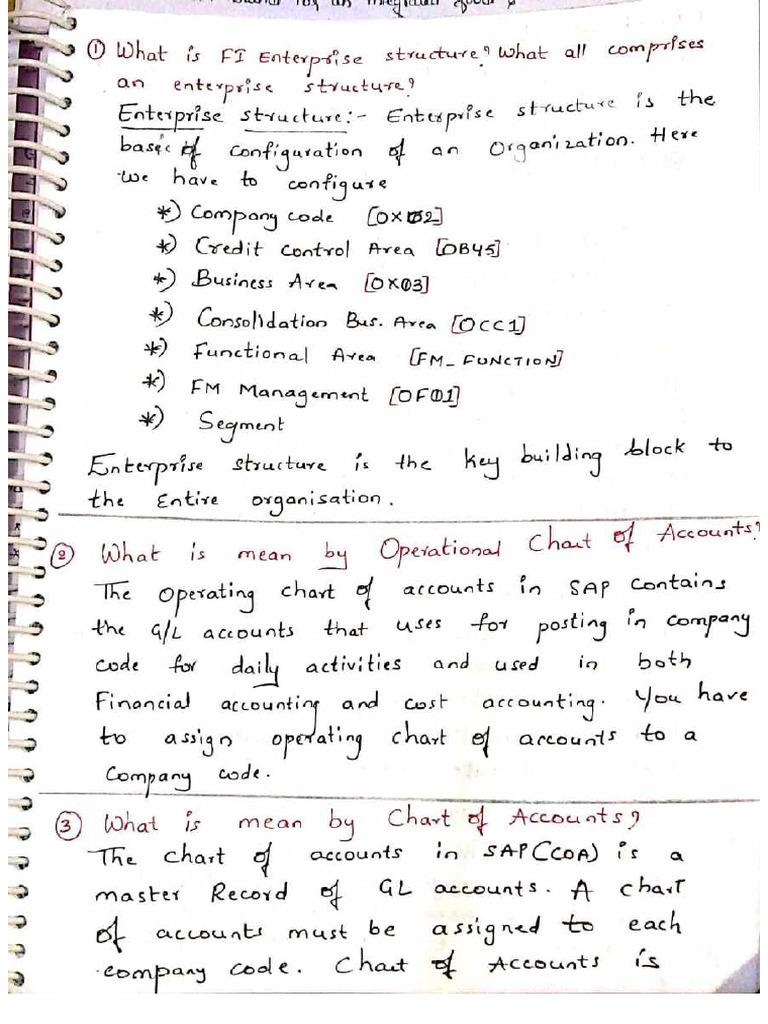 ① What is FI Enterprise structure? What all comprises
an enterprise structure?
Enterprise structure:- Enterprise structure is the
basic of configuration of an Organization. Here
we have to configure
*) Company code [OX02]
*) Credit Control Area [OB45]
*) Business Area [OX03]
*) Consolidation Bus. Area [OCC1]
*) Functional Area [FM_FUNCTION]
*) FM Management [OF01]
*) Segment
Enterprise structure is the key building block to
the Entire organisation.
② What is mean by Operational Chart of Accounts?
The operating chart of accounts in SAP contains
the G/L accounts that uses for posting in company
code for daily activities and used in both
Financial accounting and cost accounting. You have
to assign operating chart of accounts to a
Company code.
③ What is mean by Chart of Accounts?
The chart of accounts in SAP(COA) is a
master Record of GL accounts. A chart
of accounts must be assigned to each
company code. Chart of Accounts is